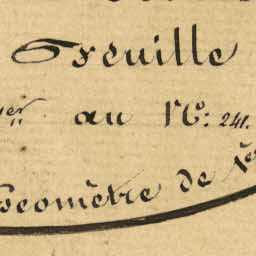 Feuille
er au N°: 241.
Géomètre de 1ère